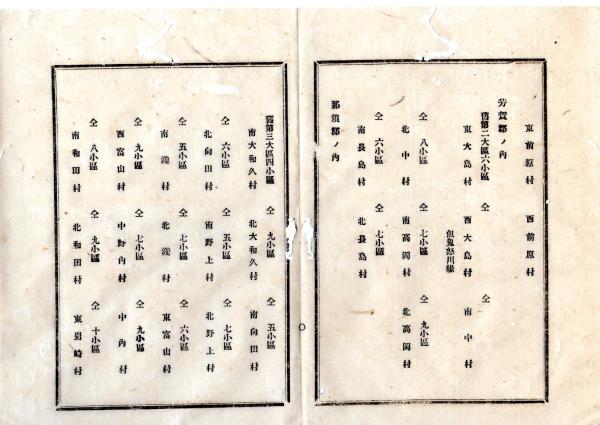 東前原村 西前原村
芳賀郡ノ內
舊第二大區六小區 仝 仝
東大島村 西大島村 南中村
但鬼怒川緣
仝 八小區 仝 七小區 仝 九小區
北中村 南高岡村 北高岡村
仝 六小區 仝 七小區
南長島村 北長島村
那須郡ノ內
舊第三大區四小區 仝 九小區 仝 五小區
南大和久村 北大和久村 南向田村
仝 六小區 仝 五小區 仝 七小區
北向田村 南野上村 北野上村
仝 五小區 仝 七小區 仝 六小區
南瀧村 北瀧村 東富山村
仝 九小區 仝 七小區 仝 九小區
西富山村 中野內村 中內村
仝 八小區 仝 九小區 仝 十小區
南和田村 北和田村 東岩崎村